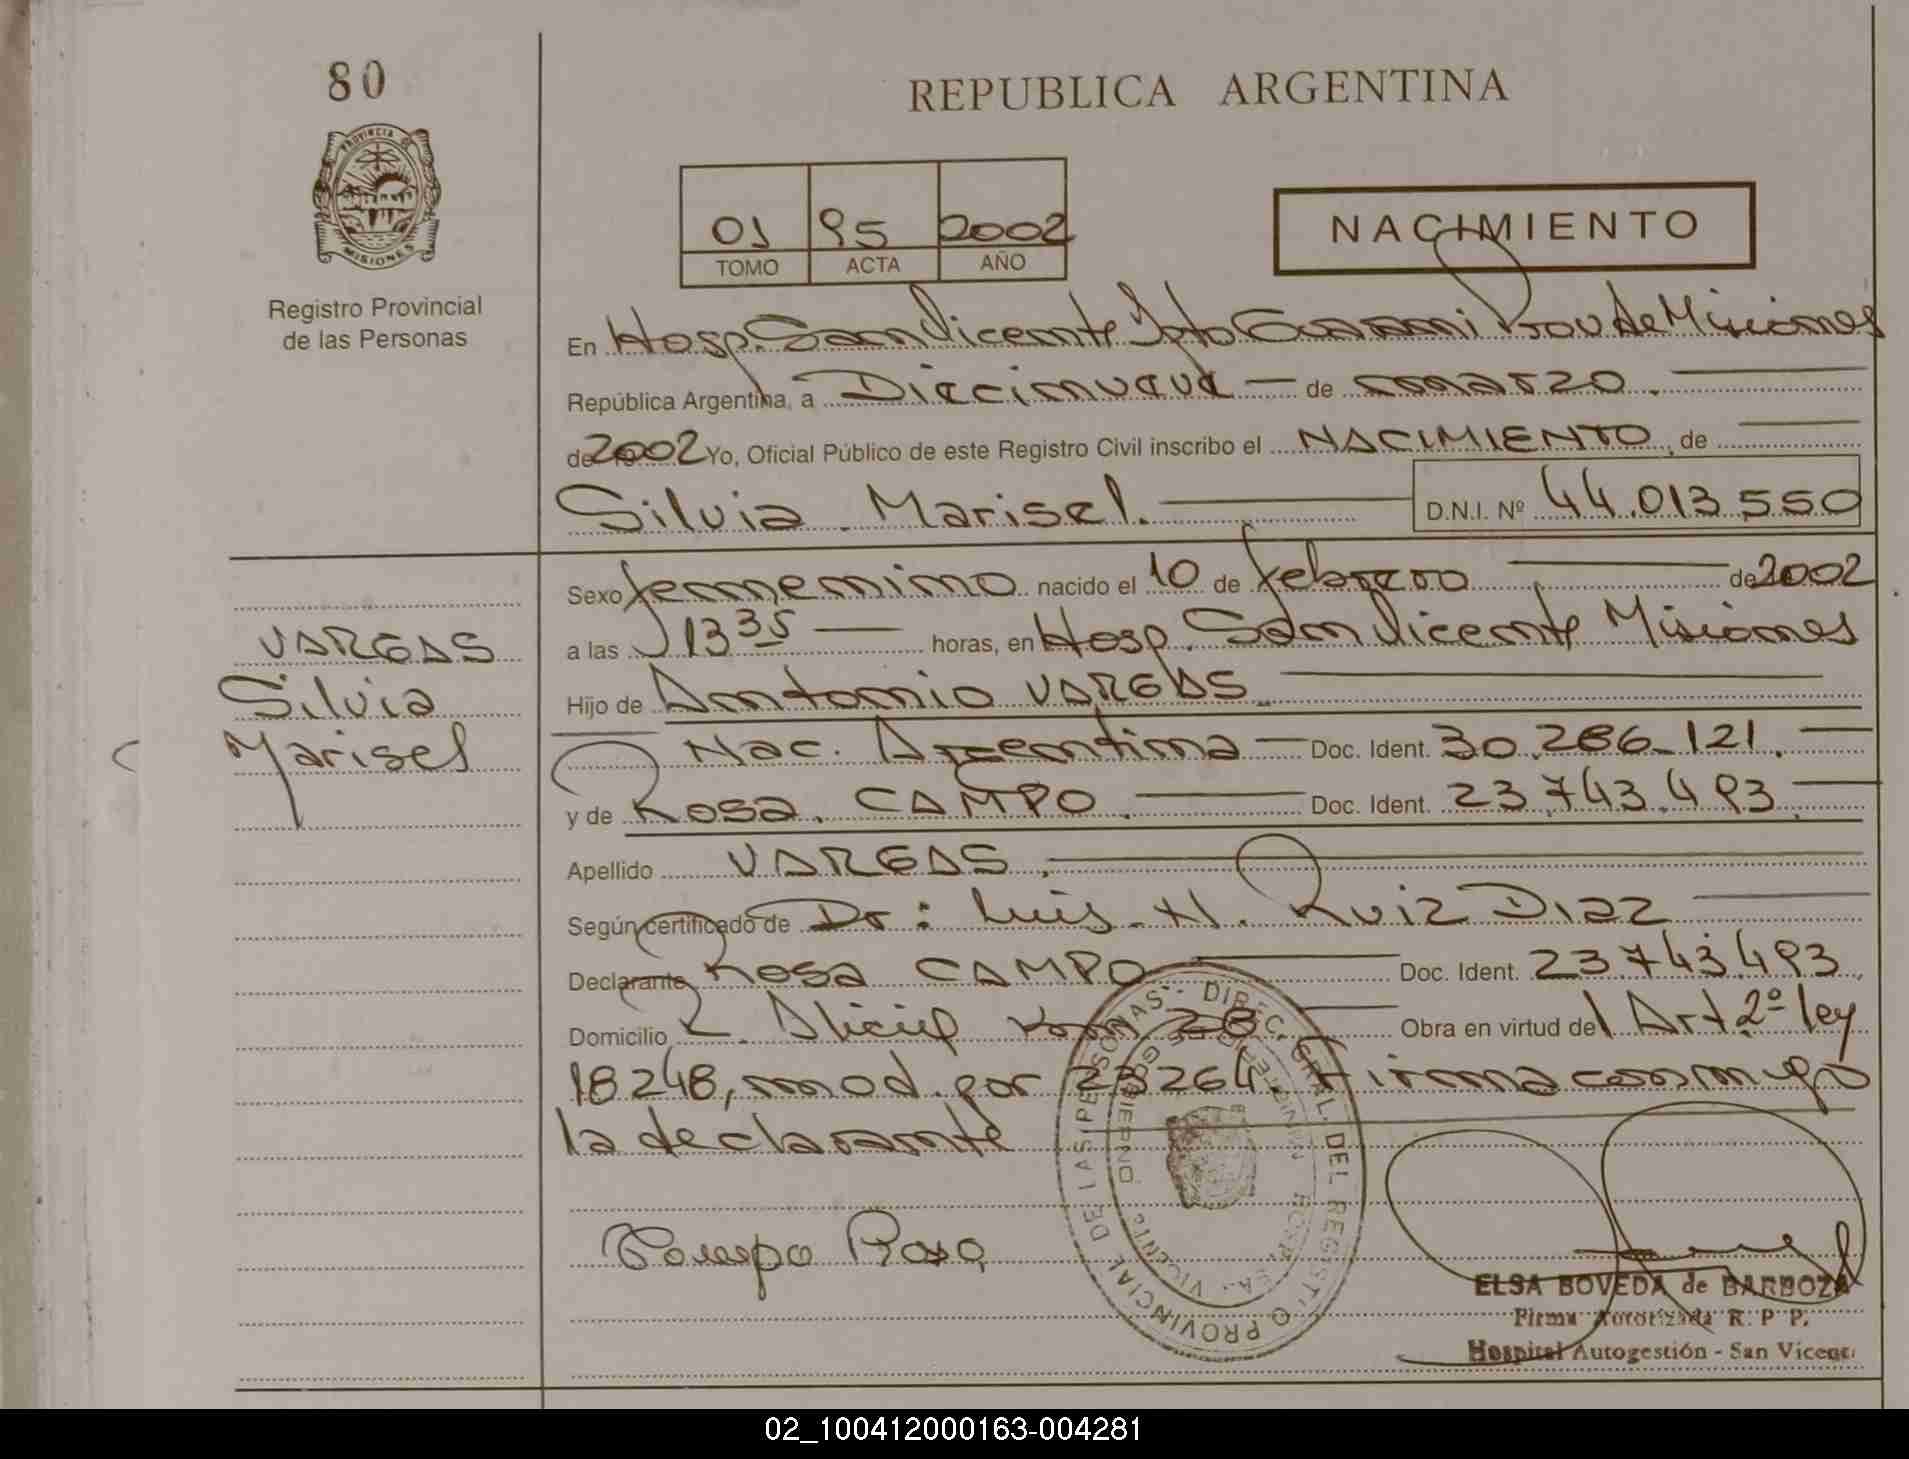 80
REPUBLICA ARGENTINA
PROVINCIA
MISIONES
Registro Provincial
de las Personas
01 95 2002
TOMO ACTA AÑO
NACIMIENTO
En Hosp. San Vicente Dpto Guarani Prov de Misiones
República Argentina, a Diecinueve de marzo.
de 2002 Yo, Oficial Público de este Registro Civil inscribo el NACIMIENTO, de
Silvia Marisel. D.N.I. Nº 44.013.550
VARGAS
Silvia
Marisel
Sexo femenino nacido el 10 de febrero de 2002
a las 13 35 horas, en Hosp. San Vicente Misiones
Hijo de Antonio VARGAS
Nac. Argentina Doc. Ident. 30.286.121.
y de Rosa. CAMPO. Doc. Ident. 23.743.493
Apellido VARGAS.
Según certificado de Dr: Luis H. Ruiz Diaz
Declarante Rosa CAMPO Doc. Ident. 23743493
Domicilio Aliciel Obra en virtud del Art 2º ley
18248, mod. por 23264. Firma conmigo
la declarante
Campo Rosa
DIREC. GRAL. DEL REGISTRO PROVINCIAL DE LAS PERSONAS
ELSA BOVEDA de BARBOZA
Firma Autorizada R. P P.
Hospital Autogestión - San Vicente
02_100412000163-004281